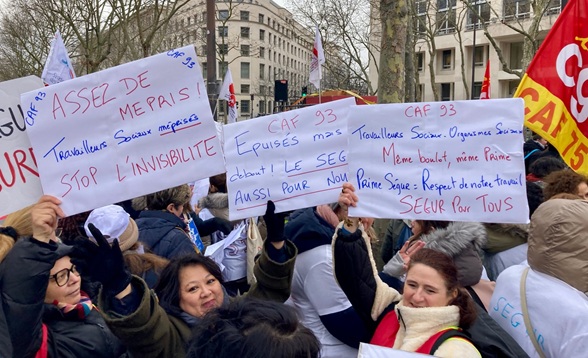 CAF 93
ASSEZ DE
MEPRIS!
CAF 93
Travailleurs Sociaux méprisés
STOP L'INVISIBILITE
CAF 93
Epuisés mais
debout! LE SEG
AUSSI POUR NOU
CAF 93
Travailleurs Sociaux. Organismes Sociaux
Même Boulot, même Prime
Prime Ségur = Respect de notre travail
SEGUR POUR TOUS
CAF 75
SEGU